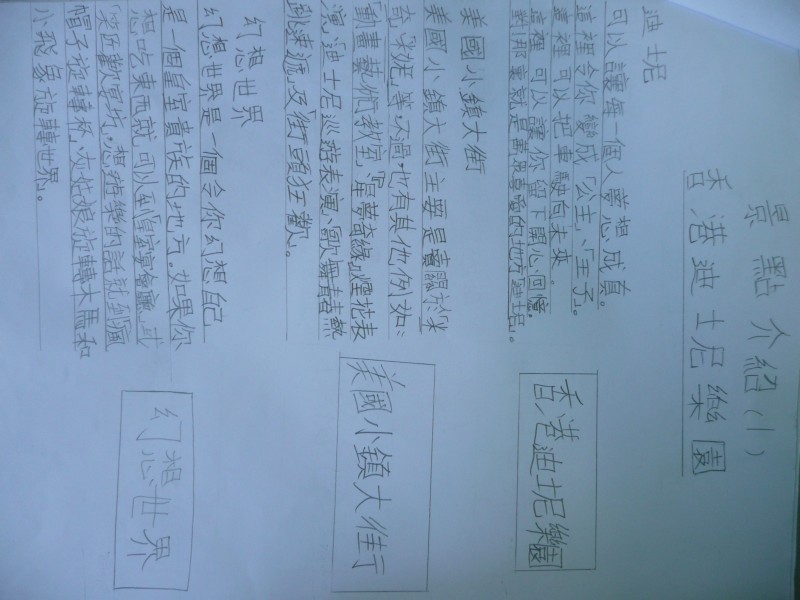 景點介紹(1)
香港迪士尼樂園
迪士尼
可以讓每一個人夢想成真。
這裡令你變成「公主」、「王子」。
這裡可以把車駛向未來。
這裡可以讓你留下開心回憶。
對!那裏就是我最喜愛的地方「迪士尼」。
香港迪士尼樂園
美國小鎮大街
美國小鎮大街主要是賣關於「米
奇」、「米妮」等。不過,也有其他例如:
「動畫藝術教室」、「星夢奇緣」煙花表
演、「迪士尼巡遊表演」、「歌舞青春熱
跳速遞」及「街頭狂歡」。
美國小鎮大街
幻想世界
幻想世界是一個令你幻想自己
是一個皇室貴族的地方。如果你
想吃東西就可以到「皇室宴會廳」或
想遊樂的話就到瘋
帽子旋轉杯、灰姑娘旋轉木馬和
小飛象旋轉世界。
幻想世界